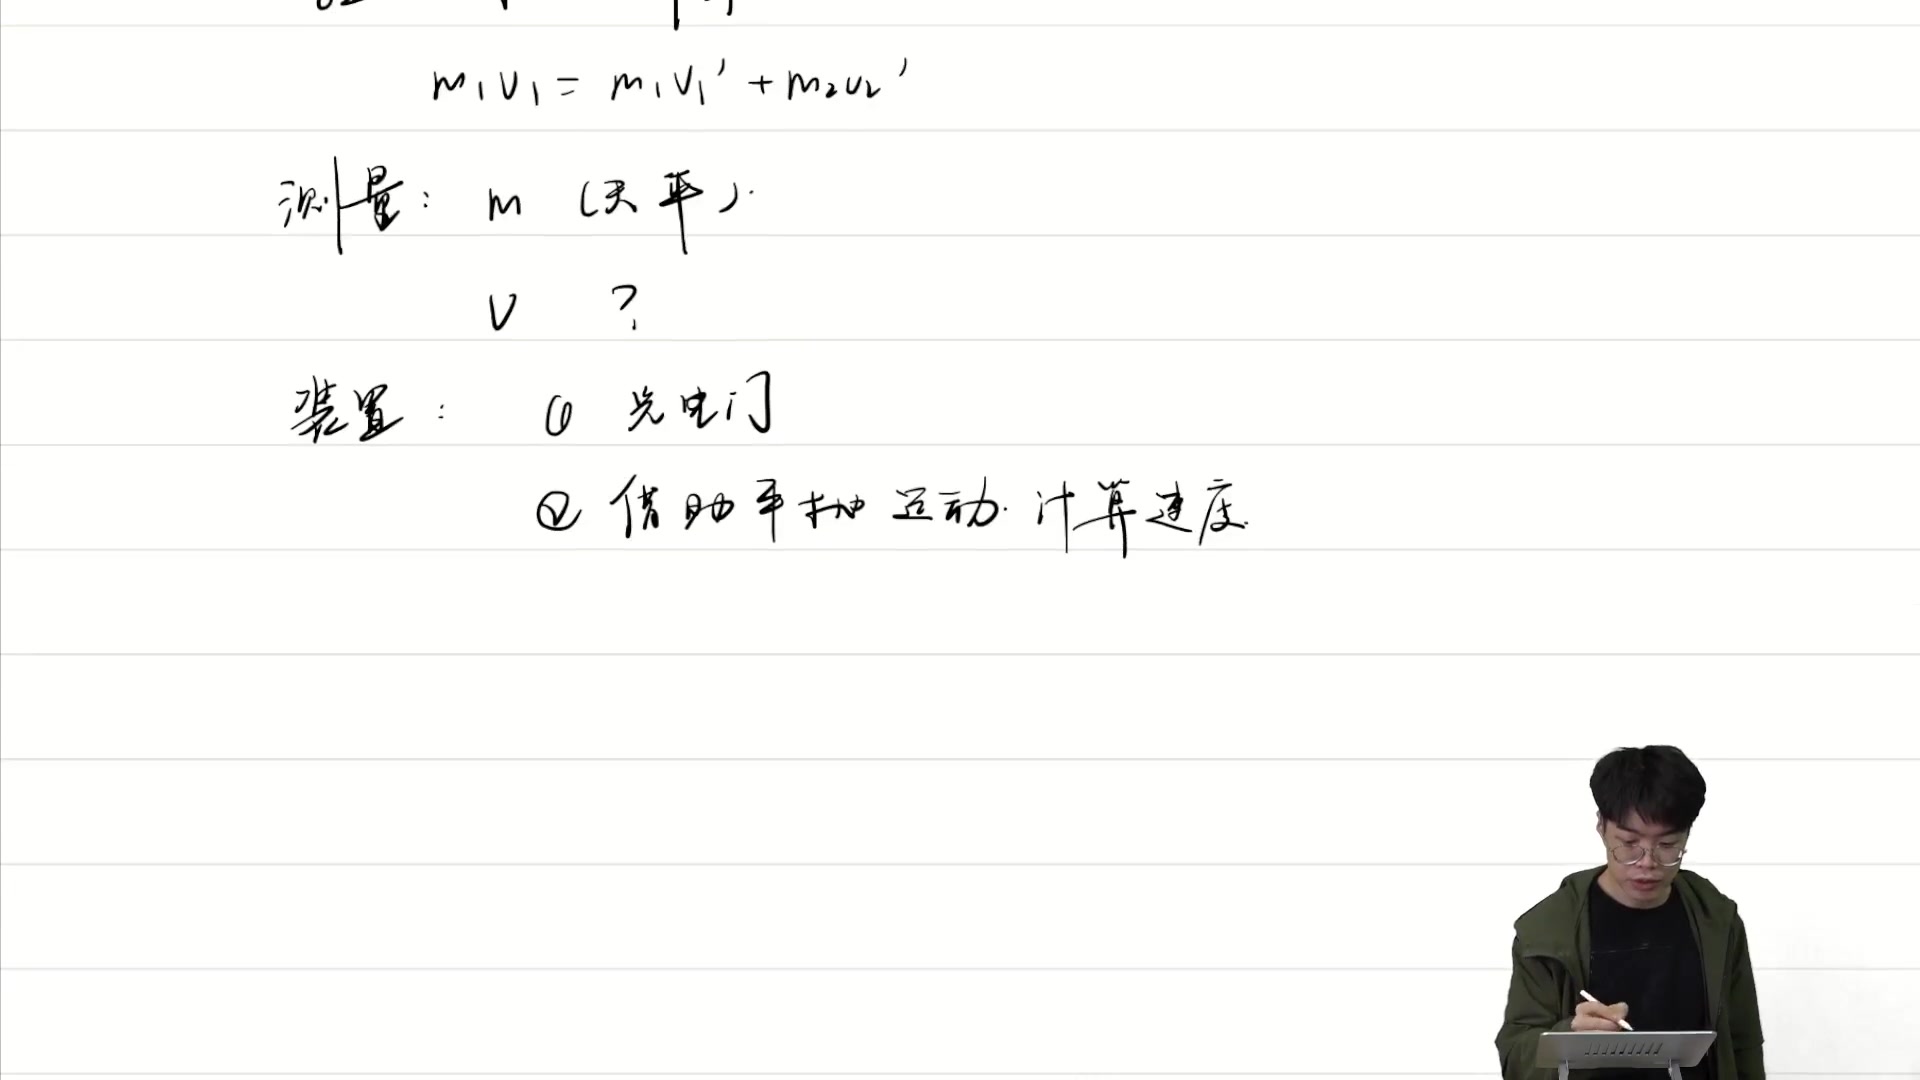 m₁v₁ = m₁v₁' + m₂v₂'
测量： m （天平）.
v ？
装置： ① 光电门
② 借助平抛运动. 计算速度.